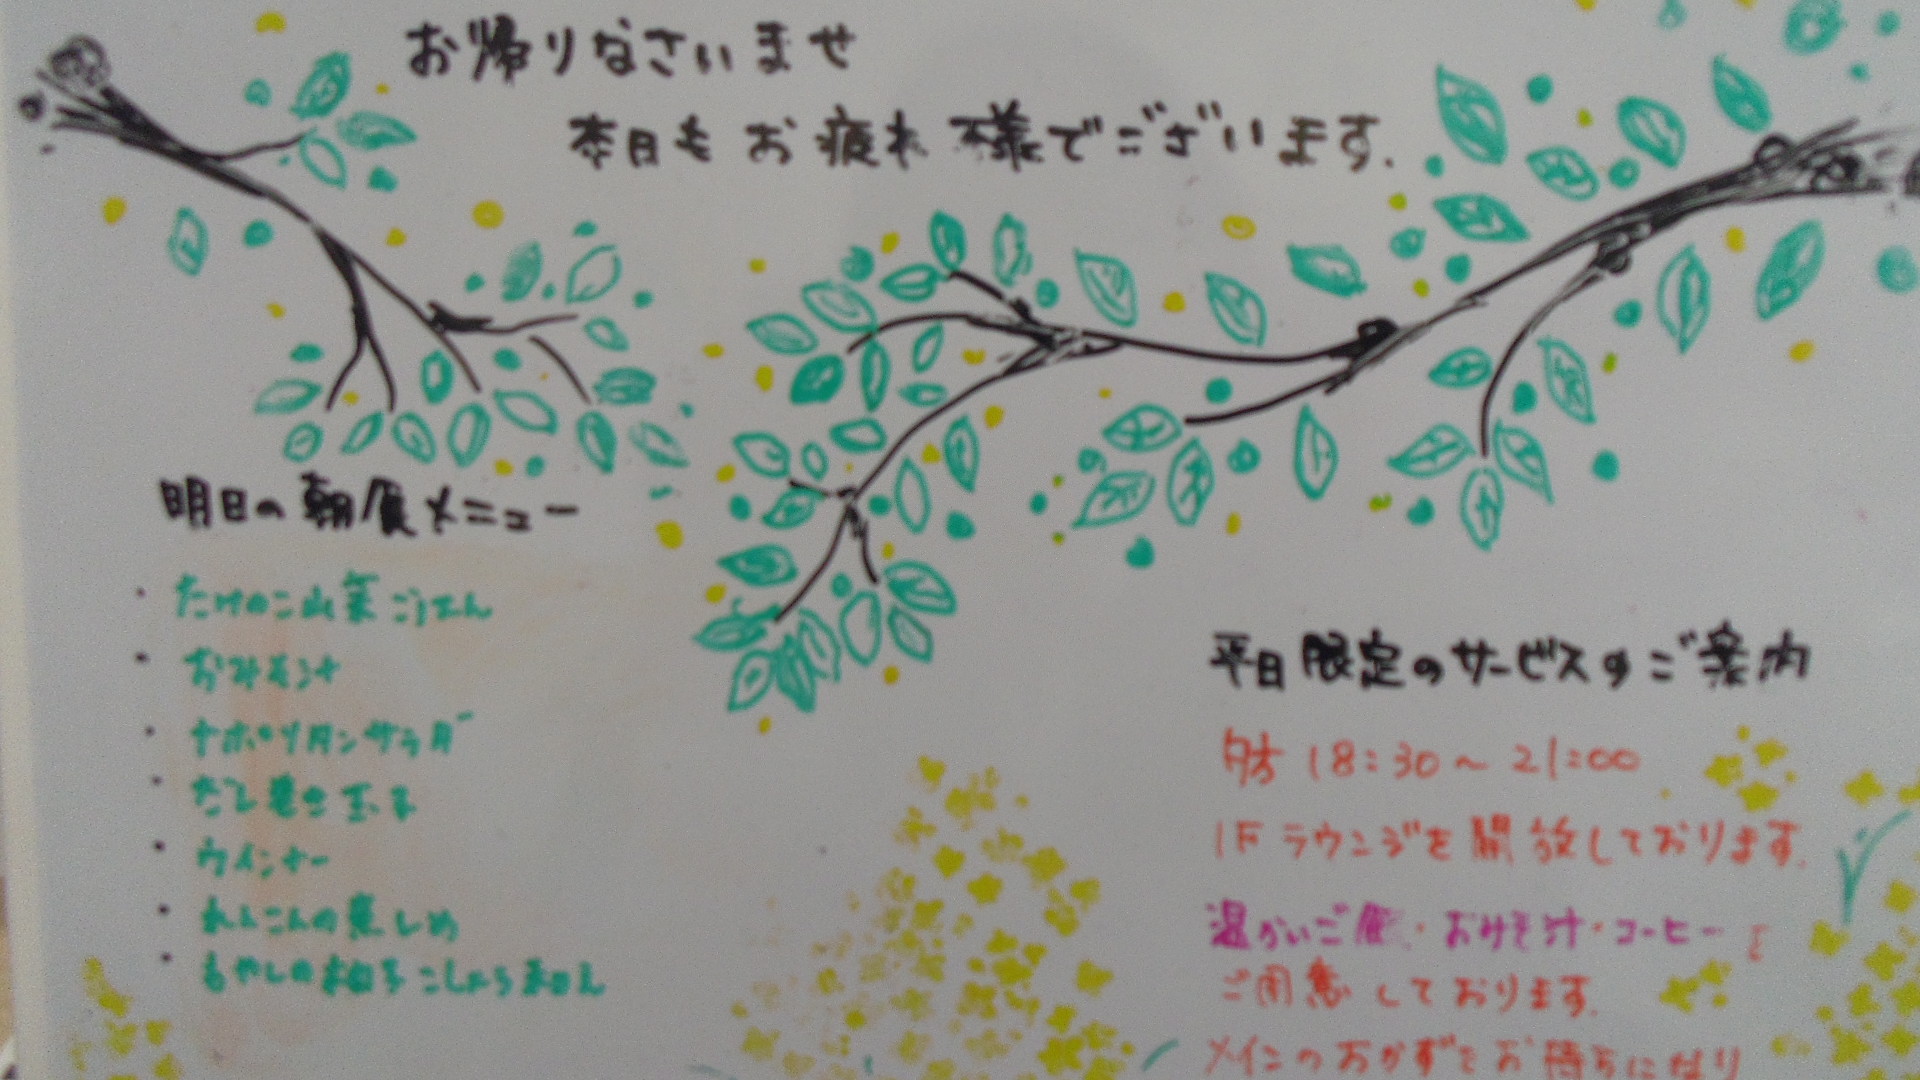 お帰りなさいませ
本日もお疲れ様でございます.
明日の朝食メニュー
・たけのこ山菜ごはん
・おみそ汁
・ナポリタンサラダ
・だし巻き玉子
・ウインナー
・れんこんの煮しめ
・もやしの柚子こしょう和え
平日限定のサービスのご案内
夕方 18:30～21:00
1Fラウンジを開放しております.
温かいご飯・おみそ汁・コーヒーを
ご用意しております.
メインのおかずをお待ちになり